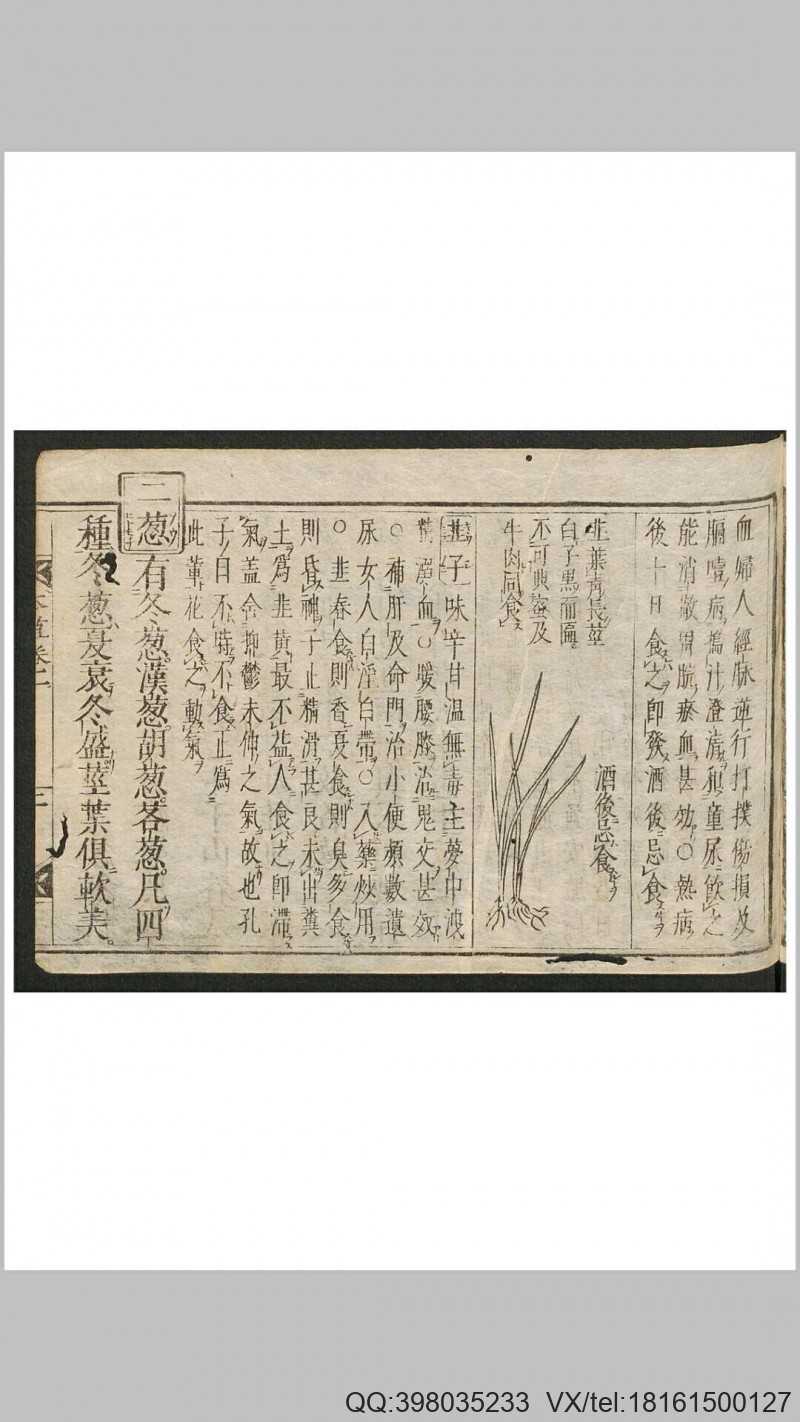 血婦人經脉逆行打撲傷損及
膈噎病搗汁澄清和童尿飲之
能消散胃脘瘀血甚効〇熱病
後十日食之即發酒後忌食
酒後忌食
韭葉青長莖
白子黒而匾
不可與蜜及
牛肉同食
韭子味辛甘温無毒主夢中洩
精溺血〇暖腰膝治鬼交甚效
〇補肝及命門治小便頻數遺
尿女人白淫白帶〇入藥炒用
〇韭春食則香夏食則臭多食
則昏神子止精滑甚良未出糞
土為韭黄最不益人食之即滯
氣盖含抑鬱未伸之氣故也孔
子曰不時不食正為
此韮花食之動氣
二葱有冬葱漢葱胡葱茖葱凡四
種冬葱夏衰冬盛莖葉俱軟美
QQ:398035233 VX/tel:18161500127